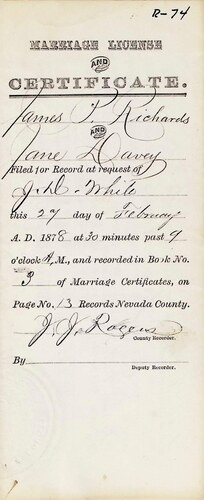 R-74
MARRIAGE LICENSE
AND
CERTIFICATE.
James P. Richards
AND
Jane Davey
Filed for Record at request of
J. D. White
this 27 day of February
A. D. 1878 at 30 minutes past 9
o'clock A. M., and recorded in Book No.
3 of Marriage Certificates, on
Page No. 13 Records Nevada County.
J. J. Rogers
County Recorder.
By
Deputy Recorder.